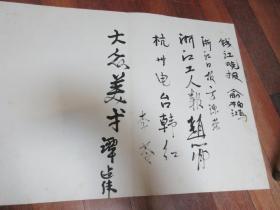 钱江晚报 俞柏鸿
浙江日报 方
浙江工人报 赵
杭州电台 韩红
大众美术 谭